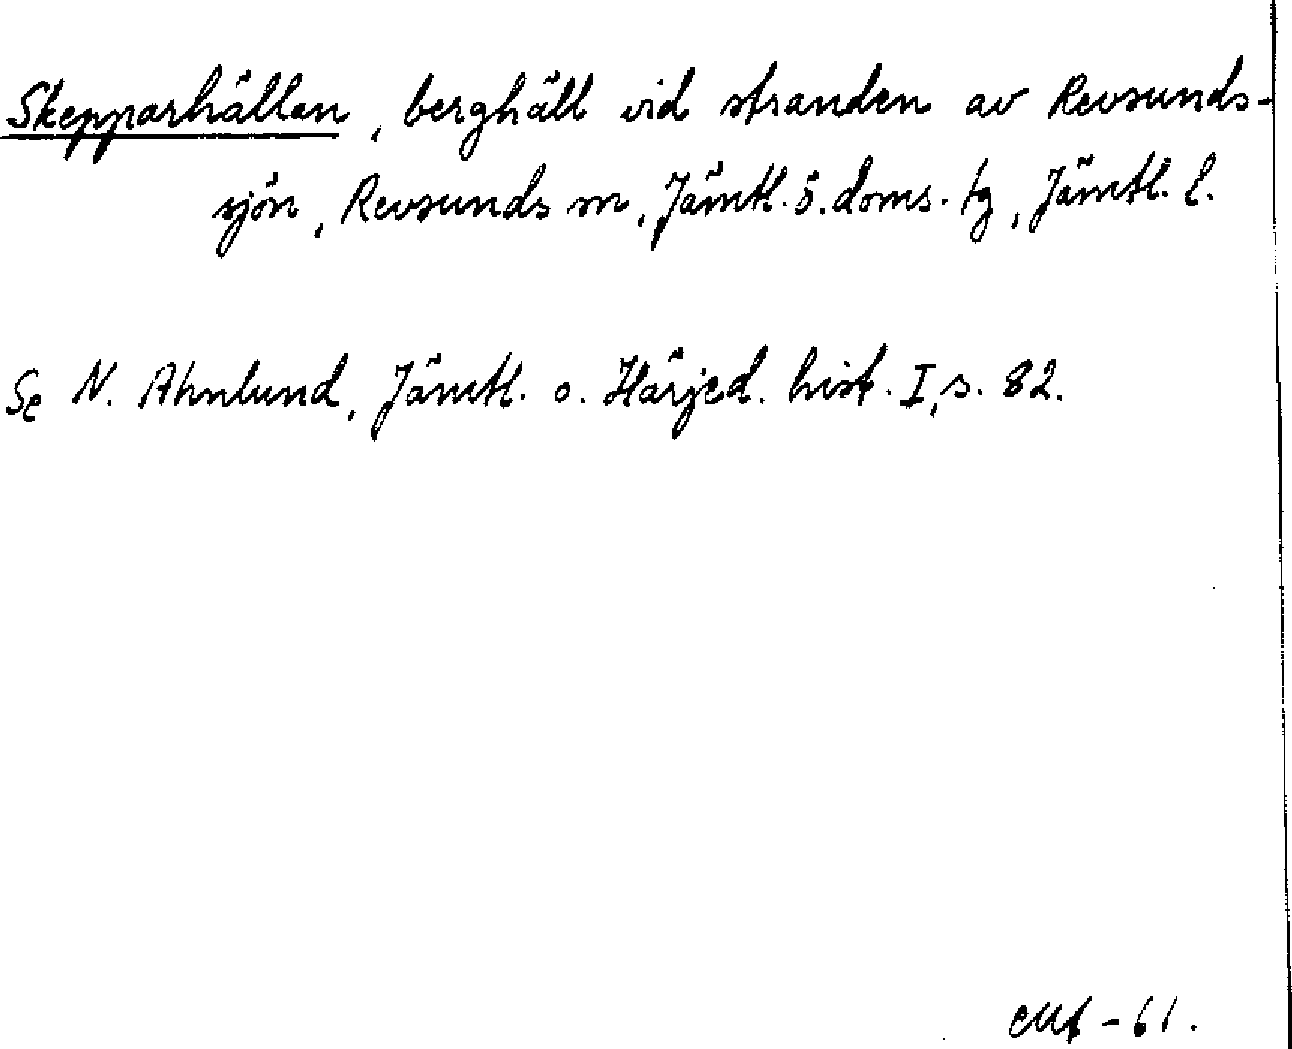 Skepparhällan, berghäll vid stranden av Revsunds-
sjön, Revsunds sn, Jämtl. ö. doms. tg, Jämtl. l.
Se N. Ahnlund, Jämtl. o. Härjed. hist. I, s. 82.
-61.